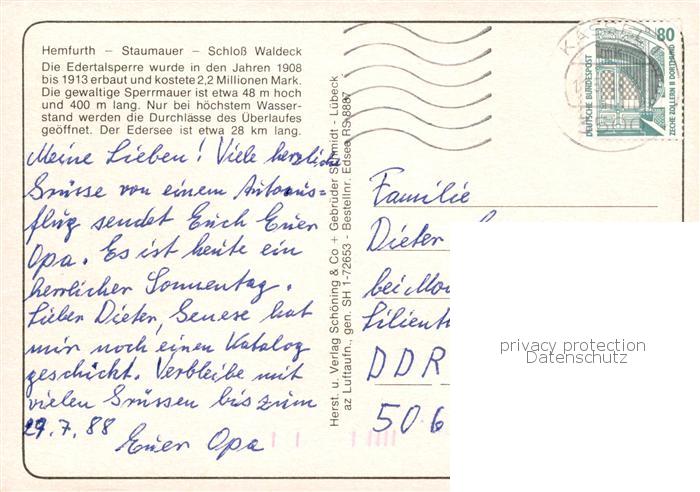 Hemfurth – Staumauer – Schloß Waldeck
Die Edertalsperre wurde in den Jahren 1908
bis 1913 erbaut und kostete 2,2 Millionen Mark.
Die gewaltige Sperrmauer ist etwa 48 m hoch
und 400 m lang. Nur bei höchstem Wasser-
stand werden die Durchlässe des Überlaufes
geöffnet. Der Edersee ist etwa 28 km lang.
Meine Lieben! Viele herzliche
Grüsse von einem Autoaus-
flug sendet Euch Euer
Opa. Es ist heute ein
herrlicher Sonnentag.
Lieber Dieter, Genese hat
mir noch einen Katalog
geschickt. Verbleibe mit
vielen Grüssen bis zum
Euer Opa
29.7.88
Herst. u. Verlag Schöning & Co + Gebrüder Schmidt - Lübeck
az Luftaufn., gen. SH 1-72653 - Bestellnr. Edsee RS 8887
KASSEL
80
DEUTSCHE BUNDESPOST
ZECHE ZOLLERN II DORTMUND
Familie
Dieter
bei
DDR
506
privacy protection
Datenschutz